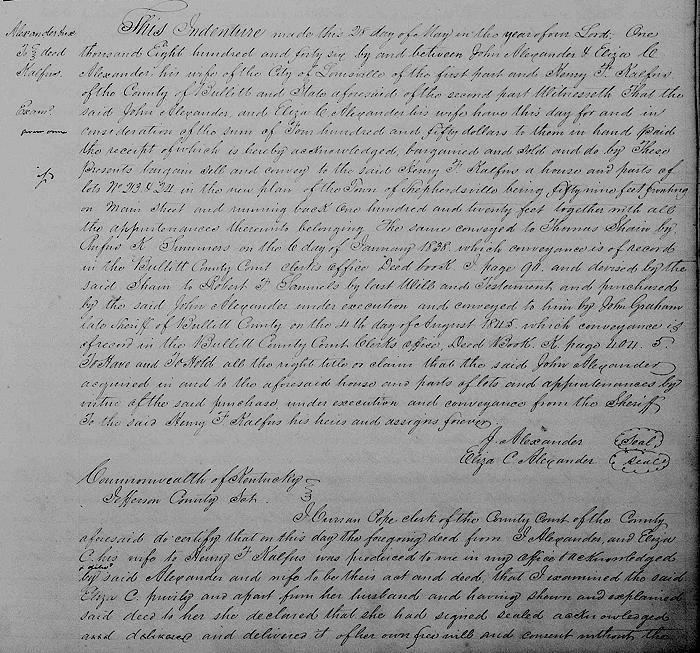 Alexander &ux
To } deed
Kalfus.
Exam.d
This Indenture made this 28 day of May in the year of our Lord, One
thousand Eight hundred and forty six by and between John Alexander & Eliza C
Alexander his wife of the City of Louisville of the first part and Henry F. Kalfus
of the County of Bullitt and State aforesaid of the second part Witnesseth That the
said John Alexander, and Eliza C Alexander his wife have this day for and in
consideration of the sum of Four hundred and fifty dollars to them in hand paid
the receipt of which is hereby acknowledged, bargained and Sold and do by These
Presents bargain sell and convey to the said Henry F. Kalfus a house and parts of
lots No 23 & 24 in the new plan of the Town of Shepherdsville being, fifty nine feet fronting
on Main Street and running back One hundred and twenty feet together with all
the appintenances thereunto belonging The same conveyed to Thomas Shain by
Rufus K Summers on the 6 day of January 1838. which conveyance is of record
in the Bullitt County Court clerks office Deed book I page 90. and devised by the
said Shain to Robert F Samuels by last Will and Testament and purchased
by the said John Alexander under execution and conveyed to him by John Graham
late Sheriff of Bullitt County on the 4th day of August 1845. which conveyance is
of record in the Bullitt County Court Clerks office, Deed Book K page 404. 5
To Have and To Hold all the right title or claim that the said John Alexander
acquired in and to the aforesaid house and parts of lots and appintenances by
virtue of the said purchase under execution and conveyance from the Sheriff
To the said Henry F Kalfus his heirs and assigns forever
J. Alexander (Seal)
Eliza C. Alexander (Seal)
Commonwealth of Kentucky }
Jefferson County Sct. }
I Curran Pope clerk of the County Court of the County
aforesaid do certify that on this day the foregoing deed from J Alexander, and Eliza
C. his wife to Henry F Kalfus was produced to me in my office & acknowledged
by said Alexander and wife to be their act and deed, that I examined the said
Eliza C. privily and apart from her husband and having shewn and explained
said deed to her she declared that she had signed sealed acknowledged
and delivered and delivered it of her own free will and consent without the